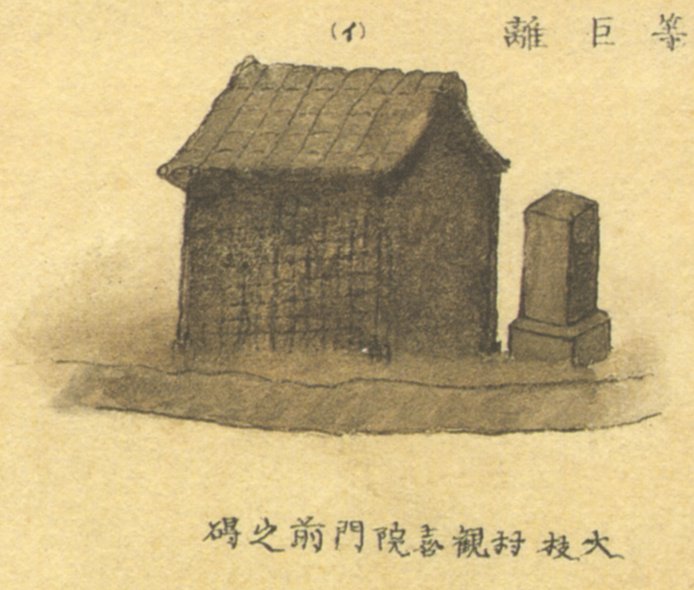 等巨離
(イ)
大枝村観喜院門前之碣